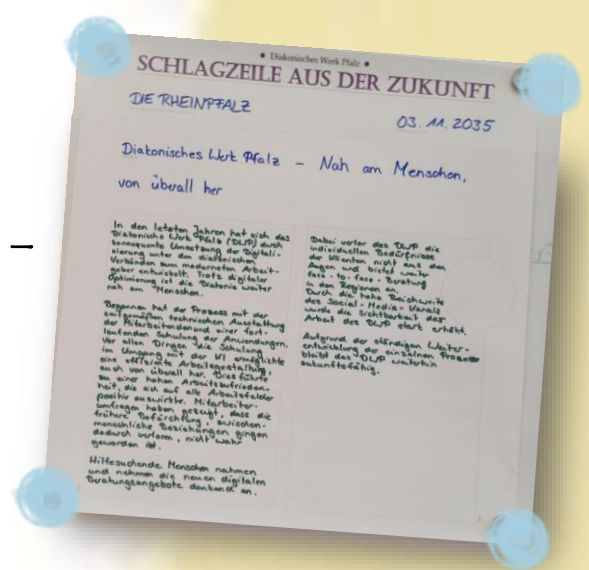 • Diakonisches Werk Pfalz •
SCHLAGZEILE AUS DER ZUKUNFT
DIE RHEINPFALZ
03. 11. 2035
Diakonisches Werk Pfalz – Nah am Menschen,
von überall her
In den letzten Jahren hat sich das
Diakonische Werk Pfalz (DWP) durch
konsequente Umsetzung der Digitali-
sierung unter den diakonischen
Verbänden zum modernsten Arbeit-
geber entwickelt. Trotz digitaler
Optimierung ist die Diakonie weiter
nah am Menschen.
Begonnen hat der Prozess mit der
zeitgemäßen technischen Ausstattung
der Mitarbeitenden und einer fort-
laufenden Schulung der Anwendungen.
Vor allen Dingen die Schulung
im Umgang mit der KI ermöglichte
eine effiziente Arbeitsgestaltung,
auch von überall her. Dies führte
zu einer hohen Arbeitszufrieden-
heit, die sich auf alle Arbeitsfelder
positiv auswirkte. Mitarbeiter-
umfragen haben gezeigt, dass die
frühere Befürchtung, zwischen-
menschliche Beziehungen gingen
dadurch verloren, nicht wahr
geworden ist.
Hilfesuchende Menschen nahmen
und nehmen die neuen digitalen
Beratungsangebote dankend an.
Dabei verlor das DWP die
individuellen Bedürfnisse
der Klienten nicht aus den
Augen und bietet weiter
face-to-face-Beratung
in den Regionen an.
Durch die hohe Reichweite
des Social-Media-Kanals
wurde die Sichtbarkeit der
Arbeit des DWP stark erhöht.
Aufgrund der ständigen Weiter-
entwicklung der einzelnen Prozesse
bleibt das DWP weiterhin
zukunftsfähig.